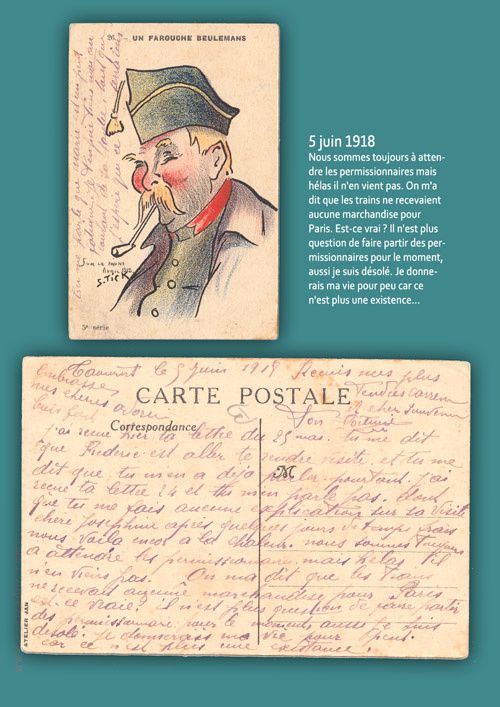 26. — UN FAROUCHE BEULEMANS
SUR LE FRONT
AVRIL 1915
S. TICK
5e série
5 juin 1918
Nous sommes toujours à atten-
dre les permissionnaires mais
hélas il n'en vient pas. On m'a
dit que les trains ne recevaient
aucune marchandise pour
Paris. Est-ce vrai ? Il n'est plus
question de faire partir des per-
missionnaires pour le moment,
aussi je suis désolé. Je donne-
rais ma vie pour peu car ce
n'est plus une existence...
le 5 juin 1918 Recois mes plus
embrasse
mes cheres
CARTE POSTALE
Correspondance
j'ai recue hier ta lettre du 29 mai. tu me dit
que Frederic est aller te rendre visite et tu me
dit que tu m'en a deja parler. pourtant j'ai
recue ta lettre 24 et tu m'en parle pas. Donc
que tu me fais aucune explication sur sa visite
chere Josephine apres quelques jours de temps frais
nous voila encor a la chaleur. nous sommes toujours
a attendre les permissionnaire mais helas il
n'en viens pas. On ma dit que les trans
ne recevais aucune marchandise pour Paris
est ce vraie? il n'est plus question de faire partir
des permissionnaire pour le moments aussi je suis
desolé. je donnerais ma vie pour peut.
car ce n'est plus une existance.
M
ATELIER JAN